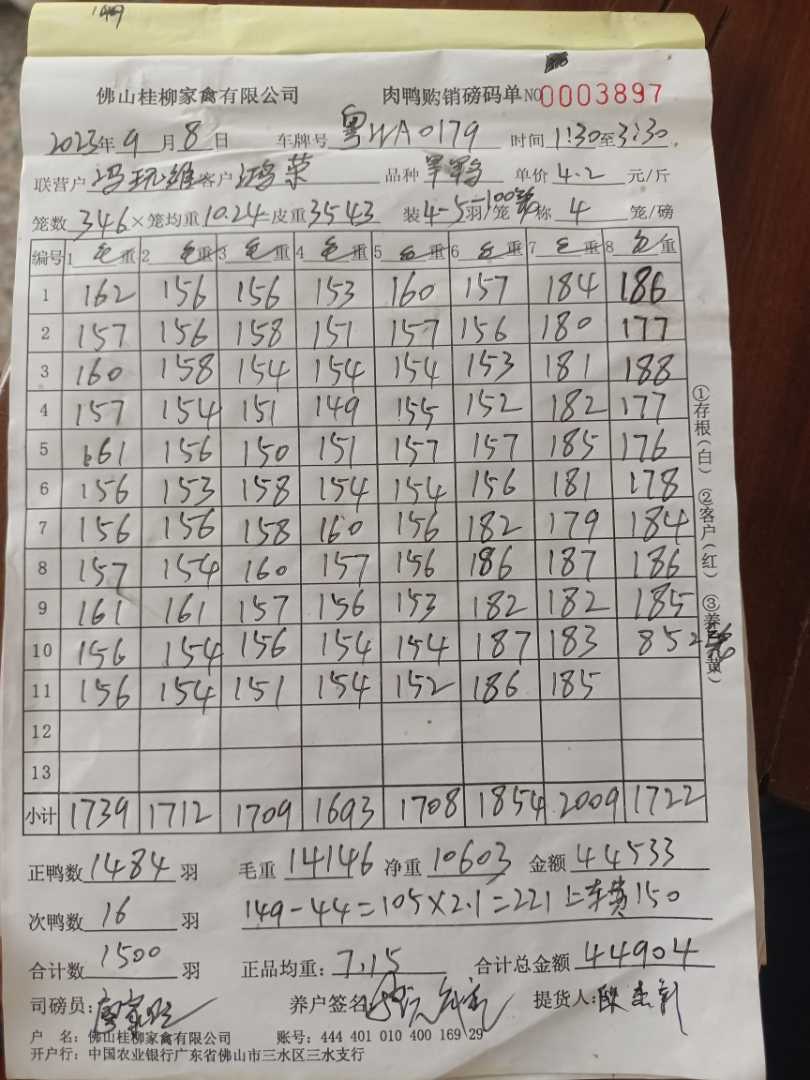 149
佛山桂柳家禽有限公司 肉鸭购销磅码单 NO 0003897
2023年 9 月 8 日 车牌号 粤WA0179 时间 1:30至3:30
联营户 客户 鸿荣 品种 单价 4.2 元/斤
笼数 346×笼均重 10.24=皮重 3543 装 4-5 羽/笼 称 4 笼/磅
编号 1 毛重 2 毛重 3 毛重 4 毛重 5 毛重 6 毛重 7 毛重 8 毛重
1 162 156 156 153 160 157 184 186
2 157 156 158 151 157 156 180 177
3 160 158 154 154 154 153 181 188
4 157 154 151 149 155 152 182 177
5 161 156 150 151 157 157 185 176
6 156 153 158 154 154 156 181 178
7 156 156 158 160 156 182 179 184
8 157 154 160 157 156 186 187 186
9 161 161 157 156 153 182 182 185
10 156 154 156 154 154 187 183 85
11 156 154 151 154 152 186 185
12
13
小计 1739 1712 1709 1693 1708 1854 2009 1722
①存根(白) ②客户(红) ③养
正鸭数 1484 羽 毛重 14146 净重 10603 金额 44533
次鸭数 16 羽 149-44=105×2.1=221 上车费150
合计数 1500 羽 正品均重: 7.15 合计总金额 44904
司磅员: 养户签名 提货人:
户 名: 佛山桂柳家禽有限公司 账号: 444 401 010 400 169 29
开户行: 中国农业银行广东省佛山市三水区三水支行